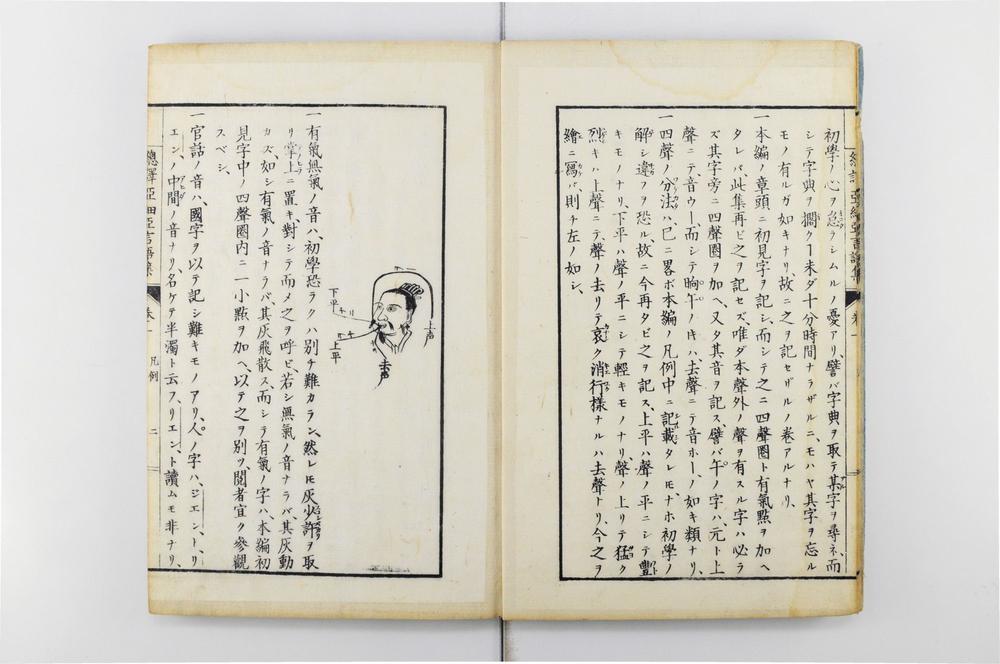 初學ノ心ヲ怠ラシムルノ憂アリ、譬バ字典ヲ取テ某字ヲ尋ネ、而
シテ字典ヲ擱クヿ未ダ十分時間ナラザルニ、モハヤ其字ヲ忘ル
モノ有ルガ如キナリ、故ニ之ヲ記セザルノ巻アルナリ、
一本編ノ章頭ニ初見字ヲ記シ、而シテ之ニ四聲圏ト有氣點ヲ加ヘ
タレバ、此集再ビ之ヲ記セズ、唯ダ本聲外ノ聲ヲ有スル字ハ必ラ
ズ其字旁ニ四聲圏ヲ加ヘ、又タ其音ヲ記ス、譬バ午ノ字ハ元ト上
聲ニテ音ウー而シテ晌午ノ時ハ去聲ニテ音ホー、ノ如キ類ナリ、
一四聲ノ分法ハ、已ニ畧ボ本編ノ凡例中ニ記載タレ𪜈、ナホ初學ノ
解シ違ヲ恐ル、故ニ今再タビ之ヲ記ス、上平ハ聲ノ平ニシテ豐
キモノナリ、下平ハ聲ノ平ニシテ輕キモノナリ、聲ノ上リテ猛ク
烈キハ上聲ニテ、聲ノ去リテ哀ク消行樣ナルハ去聲トリ、今之ヲ
繪ニ寫バ、則チ左ノ如シ、
上声
下平
上平
去声
一有氣無氣ノ音ハ、初學恐ラクハ別チ難カラン、然レ𪜈灰少許ヲ取
リ掌上ニ置キ、對シテ而メ之ヲ呼ビ、若シ無氣ノ音ナラバ、其灰動
カズ、如シ有氣ノ音ナラバ、其灰飛散ス、而シテ有氣ノ字ハ、本編初
見字中ノ四聲圏内ニ一小點ヲ加ヘ、以テ之ヲ別ツ、閲者宜ク參觀
スベシ、
一官話ノ音ハ、國字ヲ以テ記シ難キモノアリ、人ノ字ハ、ジエン、ト、リ
エン、ノ中間ノ音ナリ、名ケテ半濁ト云フ、リエン、ト讀ムモ非ナリ、
總譯亞細亞言語集 巻一 凡例 二